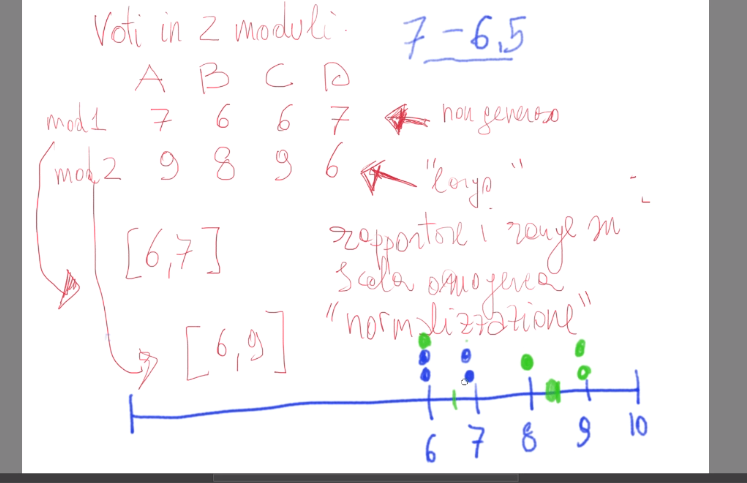 Voti in 2 moduli.
7 - 6,5
A B C D
mod1 7 6 6 7 non generoso
mod2 9 8 9 6 "largo"
[6,7]
rapportare i range in
scala omogenea
"normalizzazione"
[6,9]
6 7 8 9 10